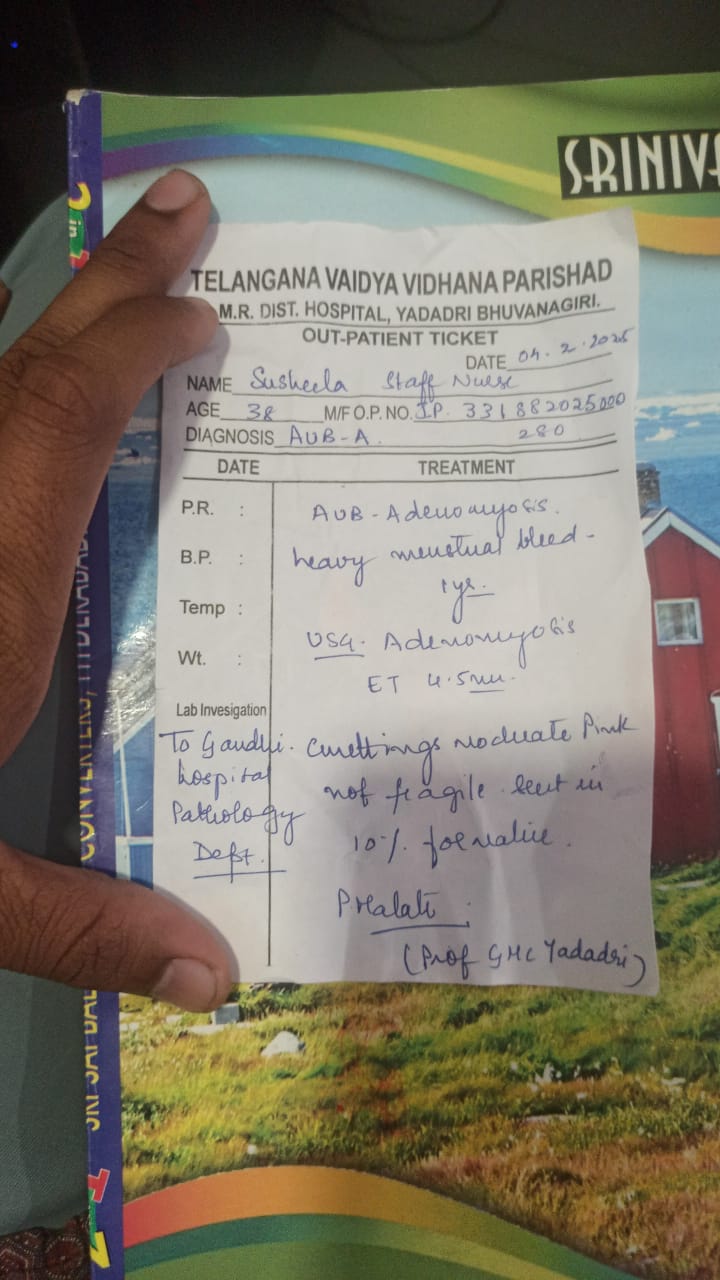 SRINIVA
TELANGANA VAIDYA VIDHANA PARISHAD
M.R. DIST. HOSPITAL, YADADRI BHUVANAGIRI.
OUT-PATIENT TICKET
DATE 04.2.2025
NAME Susheela Staff Nurse
AGE 38 M/F O.P. NO. I.P. 331882025000
280
DIAGNOSIS AUB-A.
DATE TREATMENT
P.R. :
AUB-Adenomyosis.
B.P. :
heavy menstual bleed-
1yr.
Temp :
USG. Adenomyosis
Wt. :
ET 4.5mm.
Lab Invesigation
To Gandhi.
hospital
Pathology
Deft.
Curettings moduate Pink
not fragile sent in
10% formaline.
(Prof GMC Yadadri)
CONVERTERS, HYDERABAD
SRI SAI BA